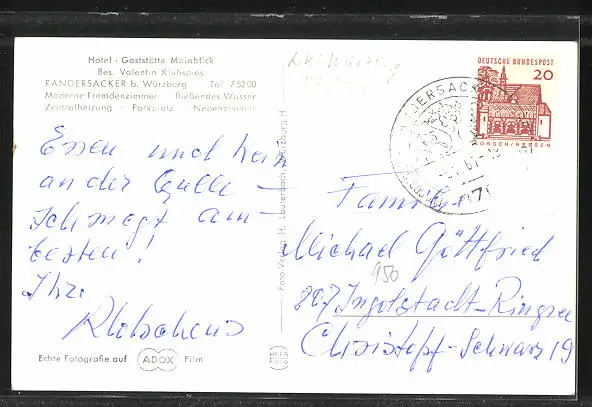 Hotel - Gaststätte Mainblick
Bes. Valentin Kluhspies
RANDERSACKER b. Würzburg Tel. 75200
Moderne Fremdenzimmer Fließendes Wasser
Zentralheizung Parkplatz Nebenzimmer
Essen und
an der Quelle -
schmegt am
besten!
Ihre
Echte Fotografie auf ADOX Film
Foto-Verlag H. Lautersach, Würzburg H
DEUTSCHE BUNDESPOST
20
LORSCH/HESSEN
RANDERSACKER
Familie
Michael Göttfried
950
807 Ingolstadt-Ringsee
Christoph-Schwarz 19